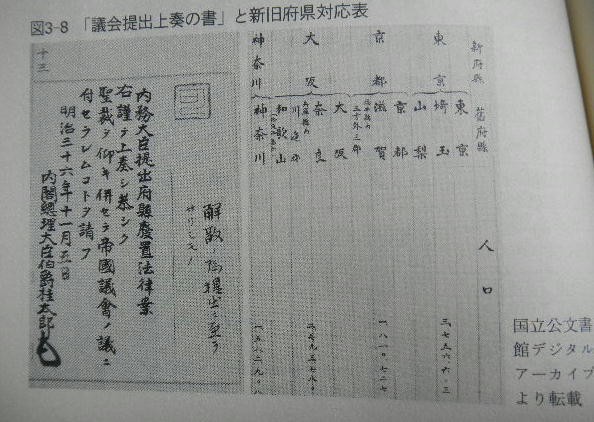 図3-8 「議会提出上奏の書」と新旧府県対応表
新府縣
舊府縣
人口
東京
東京
埼玉
山梨
京都
京都
滋賀
大阪
大阪
奈良
和歌山
神奈川
神奈川
解散ノ為提出ニ至ラ
内務大臣提出府縣廢置法律案
右謹テ上奏シ恭シク
聖裁ヲ仰キ併セテ帝國議會ノ議ニ
付セラレムコトヲ請フ
明治三十六年十一月五日
内閣總理大臣伯爵桂太郎
十三
国立公文書
館デジタル
アーカイブ
より転載